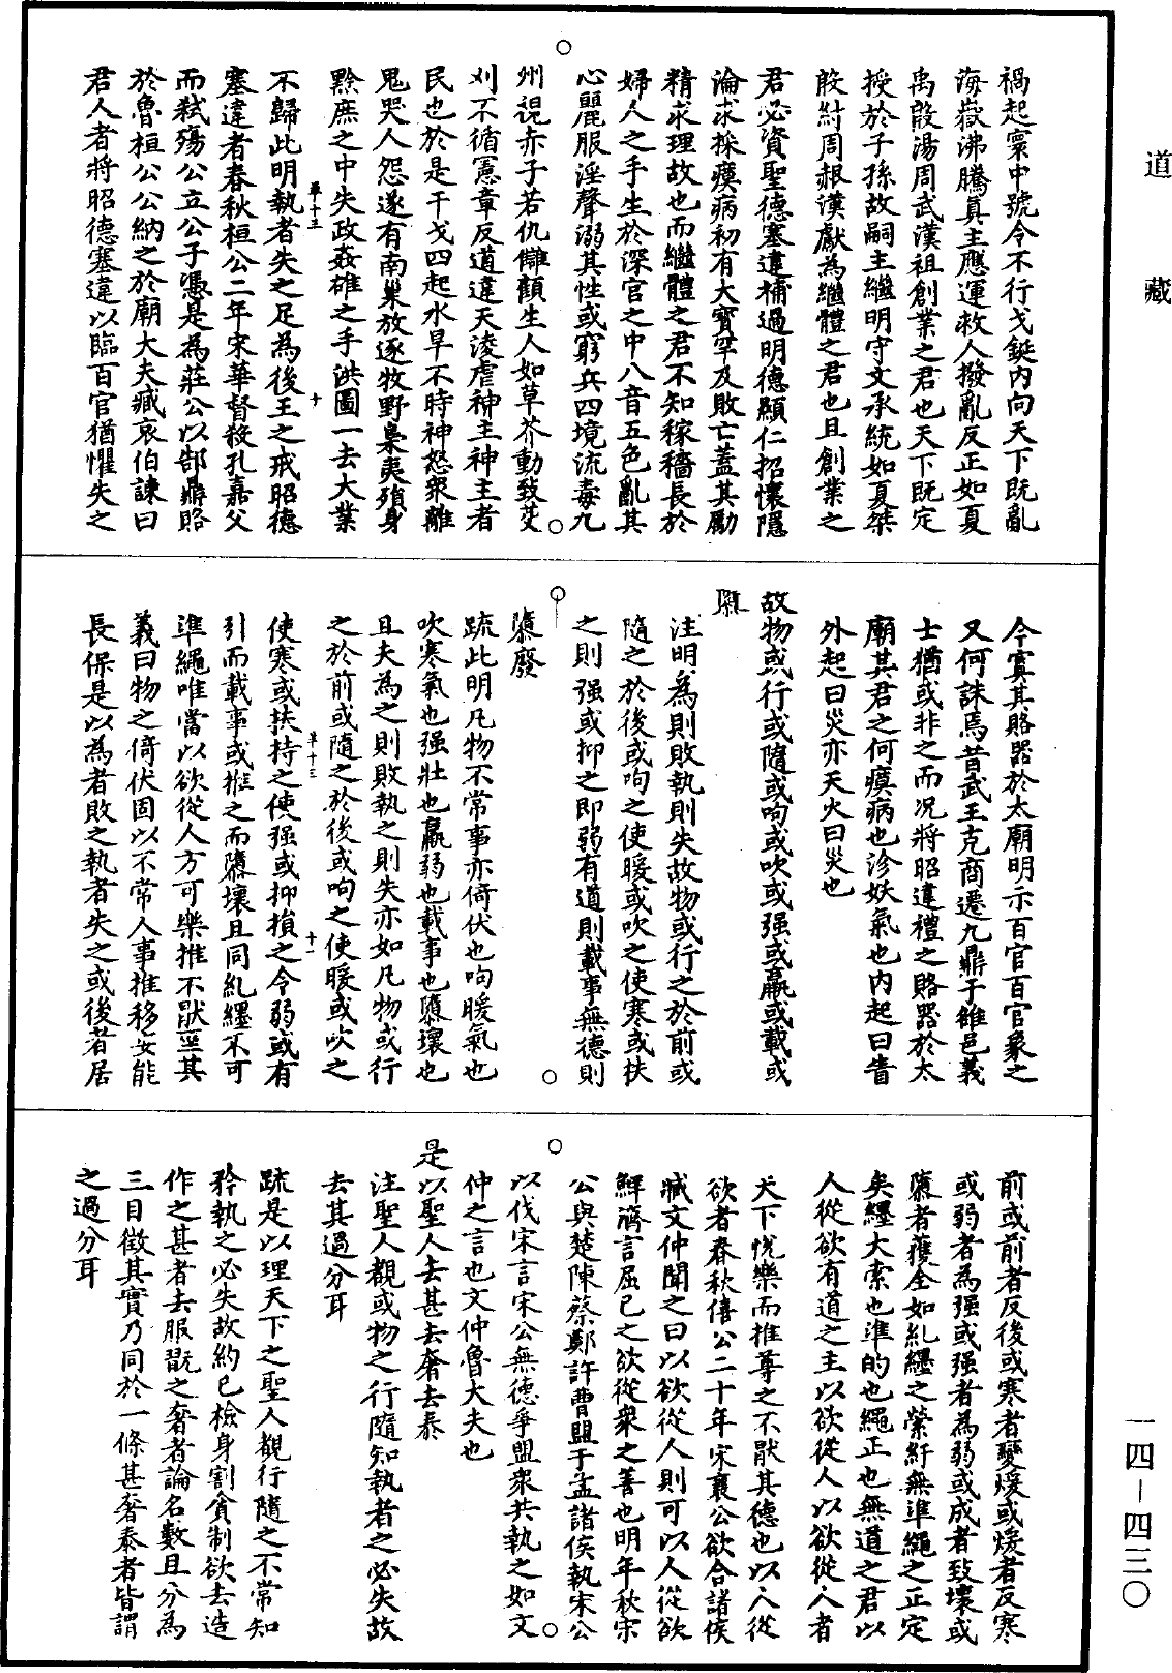 道藏
禍起寰中號令不行戈鋋内向天下既亂
海嶽沸騰真主應運救人撥亂反正如夏
禹殷湯周武漢祖創業之君也天下既定
授於子孫故嗣主繼明守文承統如夏桀
殷紂周赧漢獻為繼體之君也且創業之
君必資聖德塞違補過明德顯仁招懷隱
淪求採瘼病初有大寶罕及敗亡蓋其勵
精求理故也而繼體之君不知稼穡長於
婦人之手生於深宫之中八音五色亂其
心麗服淫聲溺其性或窮兵四境流毒九
州視赤子若仇讎顛生人如草芥動致芟
刈不循憲章反道違天淩虐神主神主者
民也於是干戈四起水旱不時神怒衆離
鬼哭人怨遂有南巢放逐牧野梟夷殞身
黔庶之中失政姦雄之手洪圖一去大業
草十三 十
不歸此明執者失之足為後王之戒昭德
塞違者春秋桓公二年宋華督殺孔嘉父
而弒殤公立公子馮是為莊公以郜鼎賂
於魯桓公公納之於廟大夫臧哀伯諫曰
君人者將昭德塞違以臨百官猶懼失之
今寘其賂器於太廟明示百官百官象之
又何誅焉昔武王克商遷九鼎于雒邑義
士猶或非之而况將昭違禮之賂器於太
廟其君之何瘼病也沴妖氣也内起曰眚
外起曰災亦天火曰災也
故物或行或隨或呴或吹或强或羸或載或
隳
注明為則敗執則失故物或行之於前或
隨之於後或呴之使暖或吹之使寒或扶
之則强或抑之即弱有道則載事無德則
隳廢
疏此明凡物不常事亦倚伏也呴暖氣也
吹寒氣也强壯也羸弱也載事也隳壞也
且夫為之則敗執之則失亦如凡物或行
之於前或隨之於後或呴之使暖或吹之
草十三 十一
使寒或扶持之使强或抑損之令弱或有
引而載事或推之而隳壞且同糺纆不可
準繩唯當以欲從人方可樂推不猒坚其
義曰物之倚伏固以不常人事推移安能
長保是以為者敗之執者失之或後者居
前或前者反後或寒者變煖或煖者反寒
或弱者為强或强者為弱或成者致壞或
隳者獲全如糺纆之縈紆無準繩之正定
矣纆大索也準的也繩正也無道之君以
人從欲有道之主以欲從人以欲從人者
天下悅樂而推尊之不猒其德也以人從
欲者春秋僖公二十年宋襄公欲合諸侯
臧文仲聞之曰以欲從人則可以人從欲
鮮濟言屈己之欲從衆之善也明年秋宋
公與楚陳蔡鄭許曹盟于盂諸侯執宋公
以伐宋言宋公無德爭盟衆共執之如文
仲之言也文仲魯大夫也
是以聖人去甚去奢去泰
注聖人覩或物之行隨知執者之必失故
去其過分耳
疏是以理天下之聖人覩行隨之不常知
矜執之必失故約己檢身割貪制欲去造
作之甚者去服翫之奢者論名數且分為
三目徵其實乃同於一條甚奢泰者皆謂
之過分耳
一四－四三〇